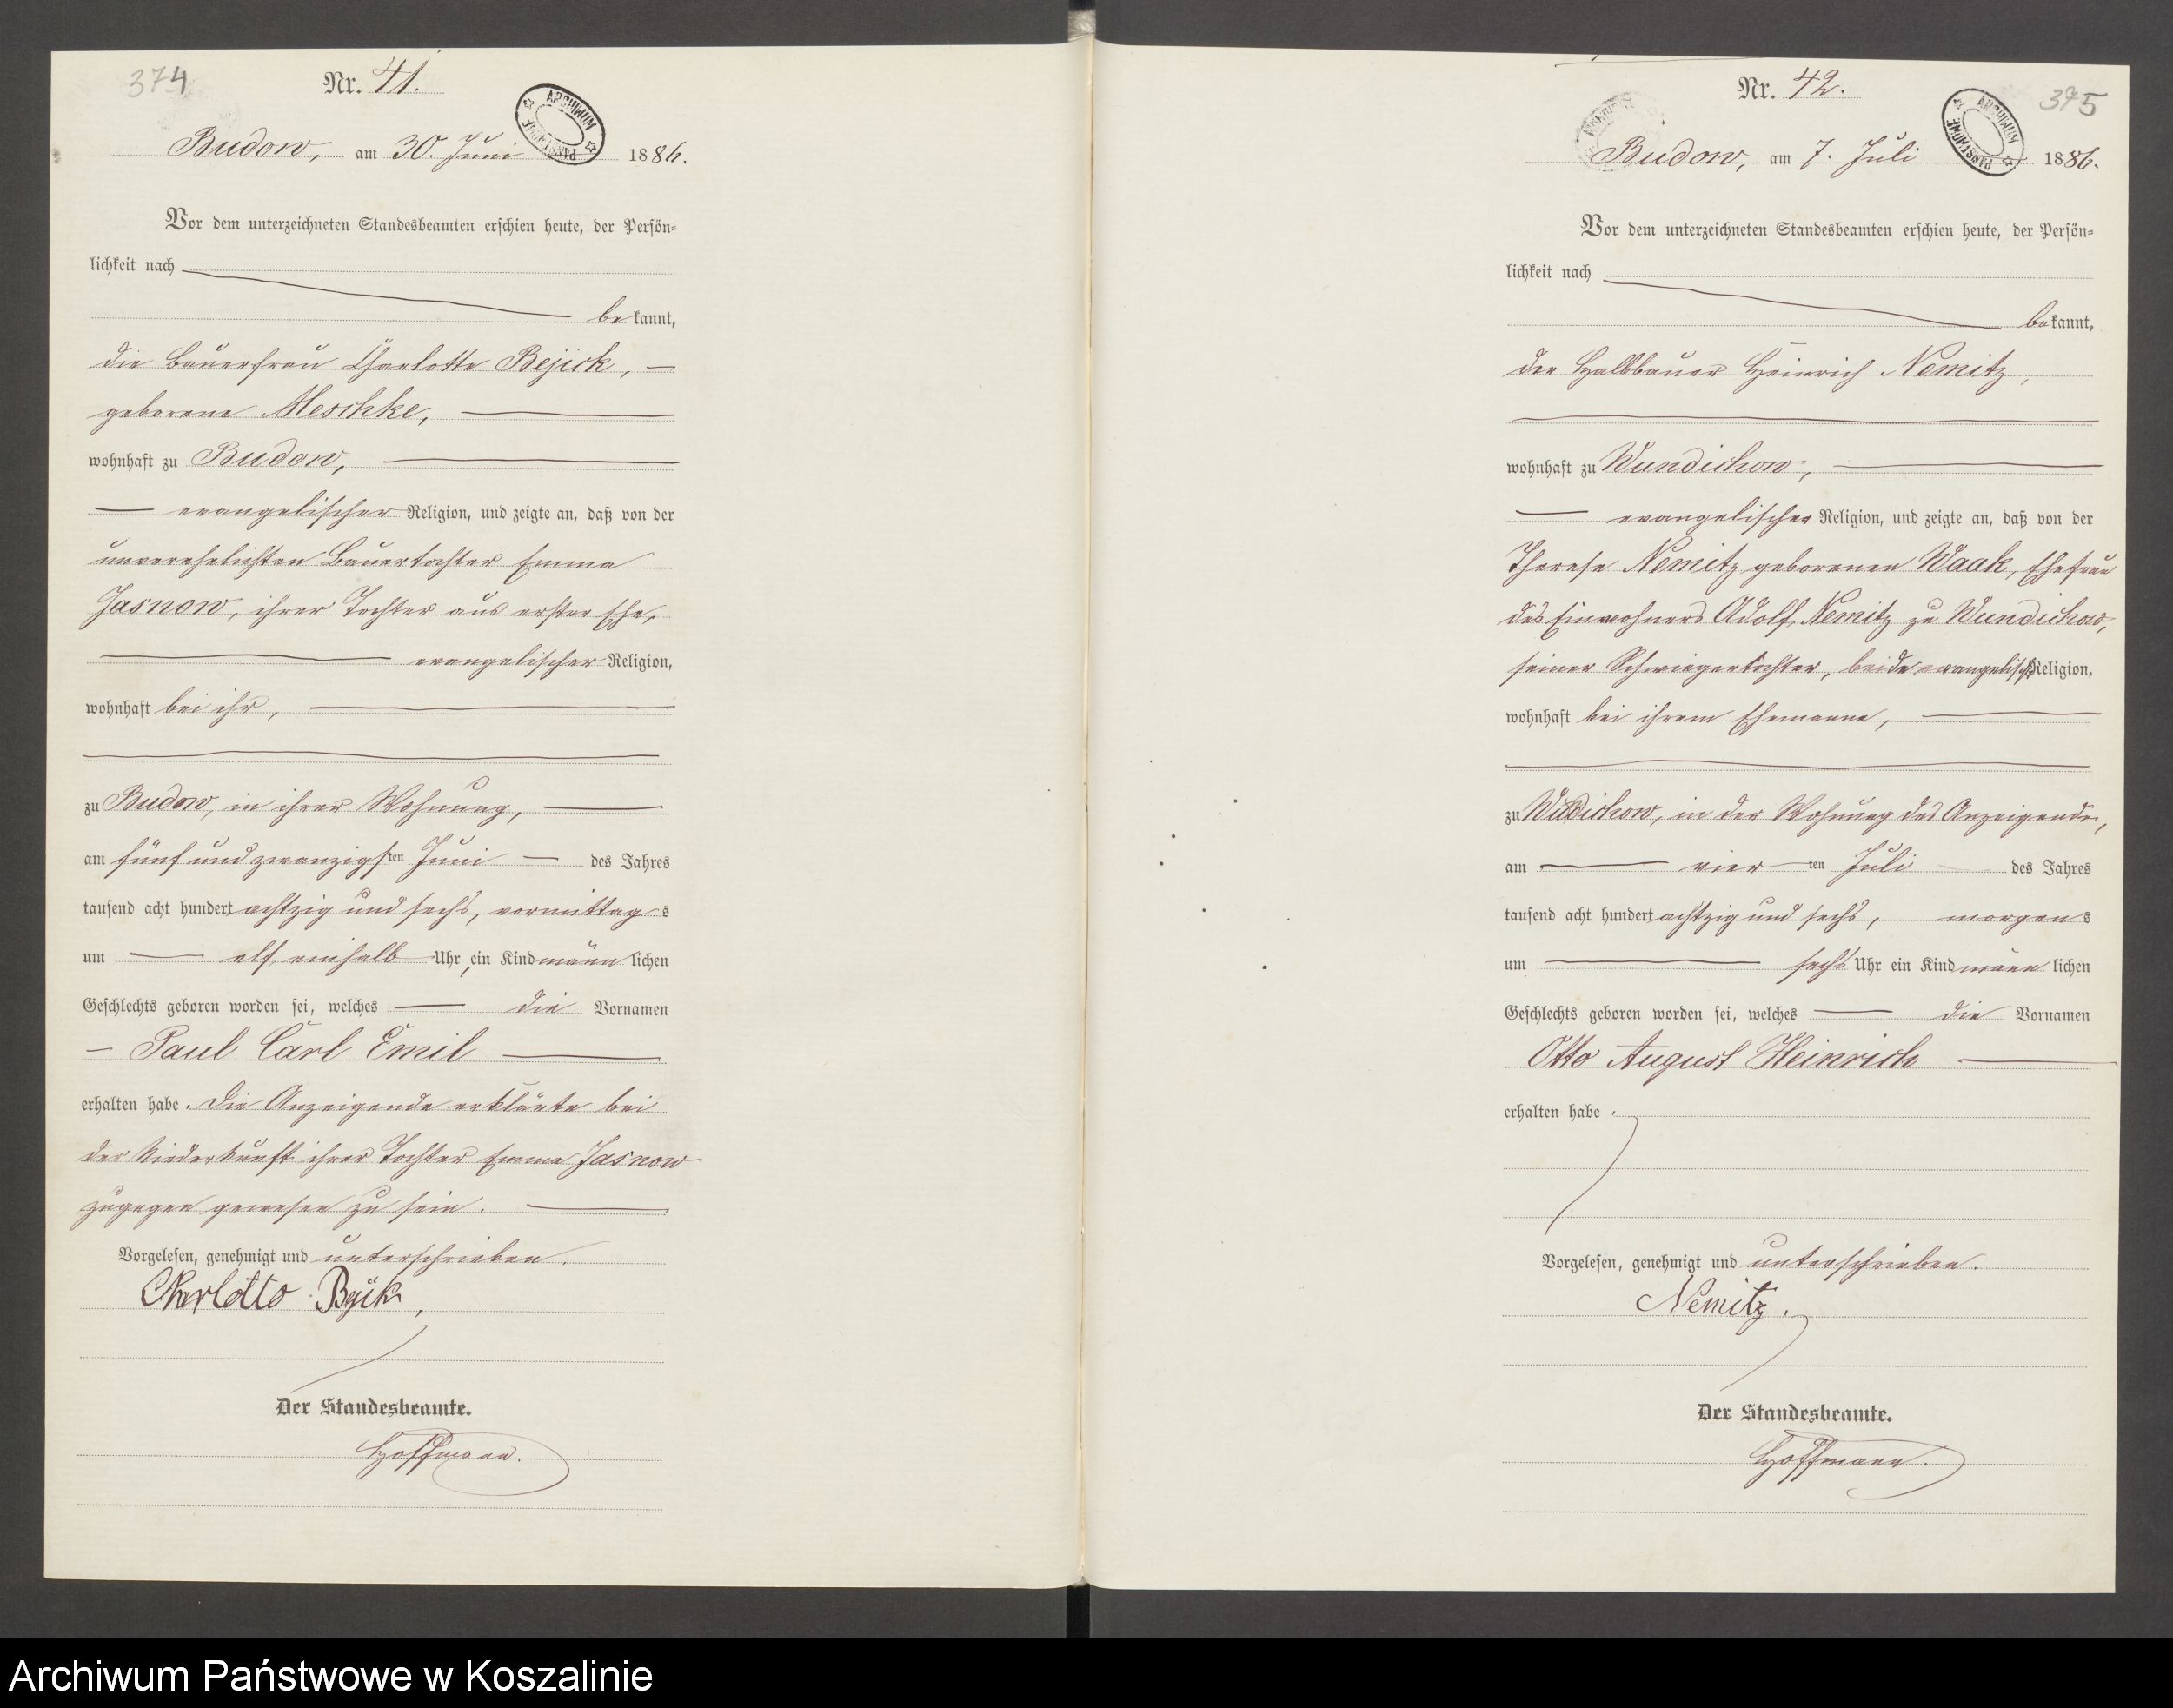 374
Nr. 41.
ARCHIWUM PAŃSTWOWE
Budow, am 30. Juni 1886.
Vor dem unterzeichneten Standesbeamten erschien heute, der Persön-
lichkeit nach
bekannt,
die Bauerfrau Charlotte Bejick,
geborene Meschke,
wohnhaft zu Budow,
evangelischer Religion, und zeigte an, daß von der
unverehelichten Bauertochter Emma
Jasnow, ihrer Tochter aus erster Ehe,
evangelischer Religion,
wohnhaft bei ihr,
zu Budow, in ihrer Wohnung,
am fünf und zwanzigsten Juni des Jahres
tausend acht hundert achtzig und sechs, vormittags
um elf einhalb Uhr, ein Kind männlichen
Geschlechts geboren worden sei, welches die Vornamen
Paul Carl Emil
erhalten habe. Die Anzeigende erklärte bei
der Niederkunft ihrer Tochter Emma Jasnow
zugegen gewesen zu sein.
Vorgelesen, genehmigt und unterschrieben.
Charlotte Bejick
Der Standesbeamte.
Hoffmann.
Nr. 42.
375
ARCHIWUM PAŃSTWOWE
Budow, am 7. Juli 1886.
Vor dem unterzeichneten Standesbeamten erschien heute, der Persön-
lichkeit nach
bekannt,
der Halbbauer Heinrich Nemitz,
wohnhaft zu Wundichow,
evangelischer Religion, und zeigte an, daß von der
Therese Nemitz geborenen Waak, Ehefrau
des Einwohners Adolf Nemitz zu Wundichow,
seiner Schwiegertochter, beide evangelisch Religion,
wohnhaft bei ihrem Ehemanne,
zu Wundichow, in der Wohnung des Anzeigenden,
am vierten Juli des Jahres
tausend acht hundert achtzig und sechs, morgens
um sechs Uhr ein Kind männlichen
Geschlechts geboren worden sei, welches die Vornamen
Otto August Heinrich
erhalten habe.
Vorgelesen, genehmigt und unterschrieben.
Nemitz.
Der Standesbeamte.
Hoffmann.
Archiwum Państwowe w Koszalinie